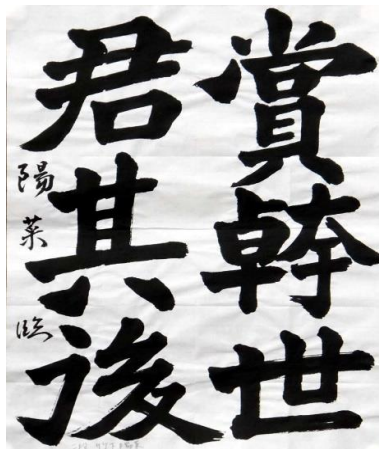 賞幹世
君其後
陽菜臨